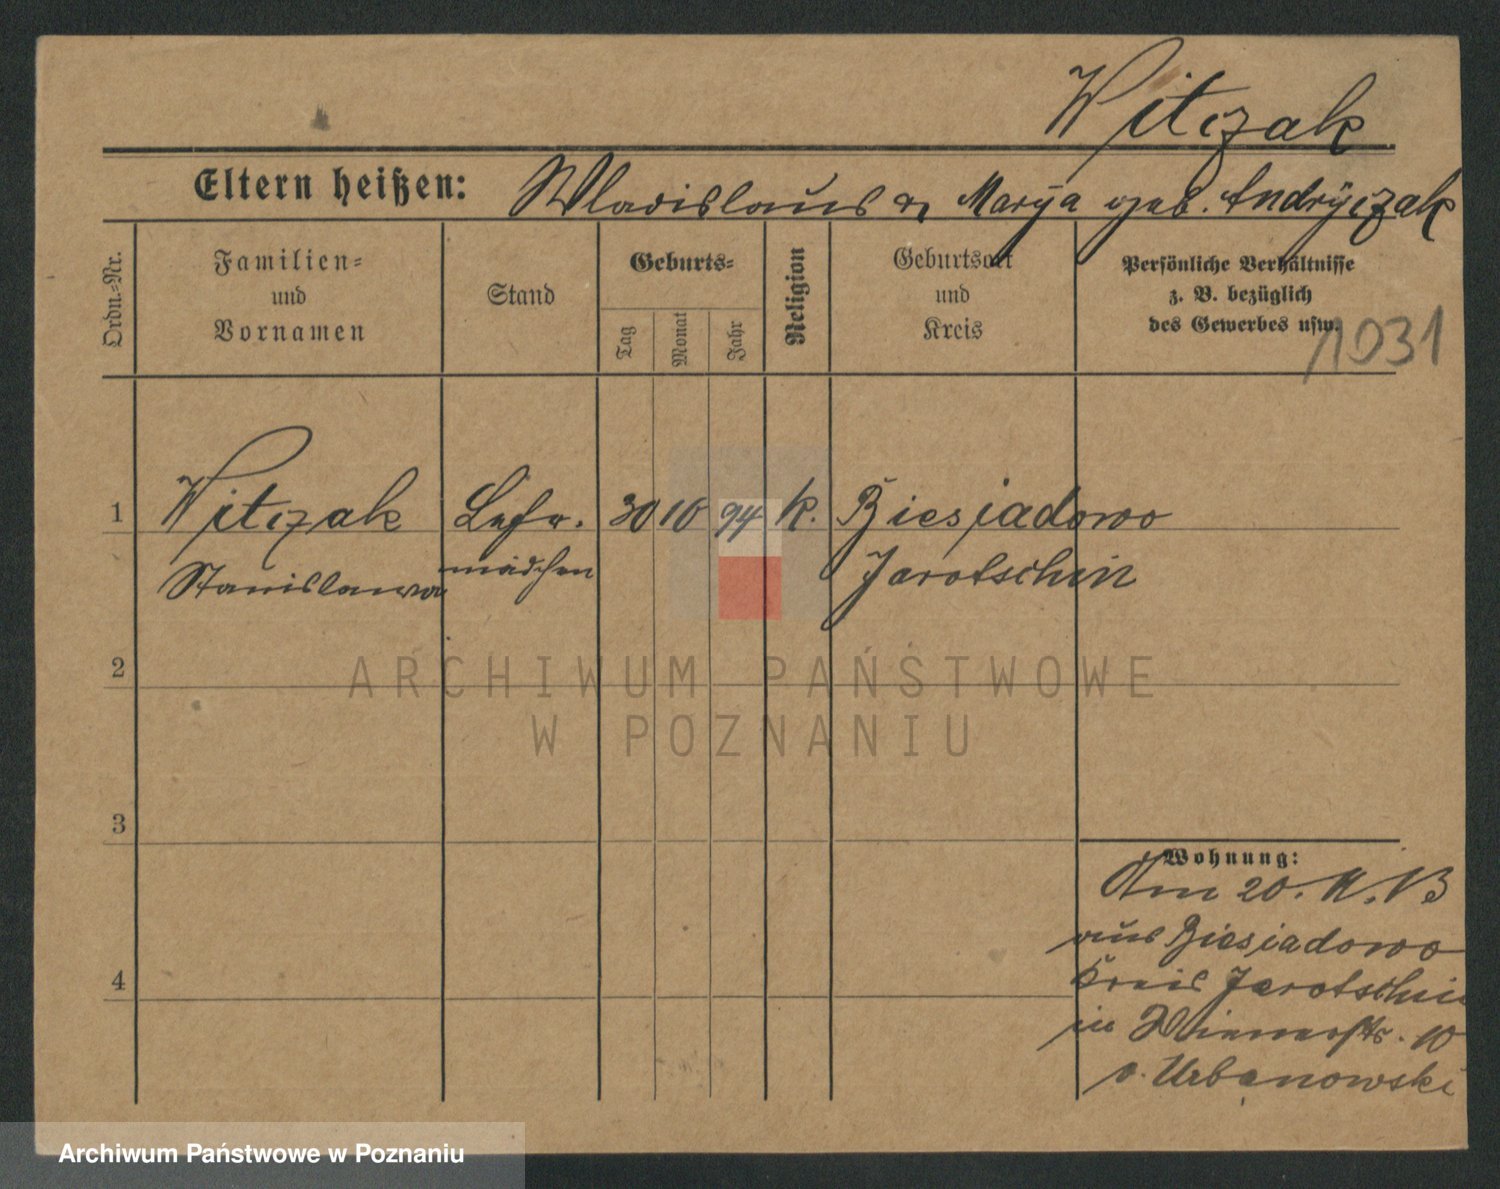 Witczak
Eltern heißen: Wladislaus u Marya geb. Andryczak
Ordn.=Nr.
Familien=
und
Vornamen
Stand
Geburts=
Tag
Monat
Jahr
Religion
Geburtsort
und
Kreis
Persönliche Verhältnisse
z. B. bezüglich
des Gewerbes usw.
1031
1 Witczak 30 10 94 k. Biesiadowo
Stanislawa mädchen Jarotschin
2
ARCHIWUM PAŃSTWOWE
W POZNANIU
3
Wohnung:
Am 20. 13
aus Biesiadowo
Kreis Jarotschin
in 10
b. Urbanowski
4
Archiwum Państwowe w Poznaniu